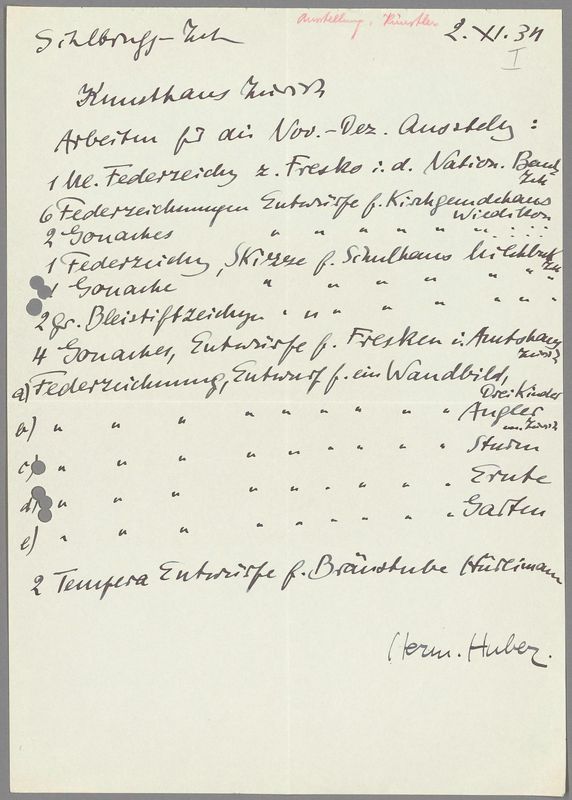 Ausstellung. Künstler
Sihlbrugg-Zch 2.XI.34
I
Kunsthaus Zürich
Arbeiten für die Nov.-Dez. Ausstellg :
1 kl. Federzeichg z. Fresko i. d. Nation. Bank
Zch
6 Federzeichnungen Entwürfe f. Kirchgemdehaus
Wiedikon
2 Gouaches " " " " " "
1 Federzeichg, Skizze f. Schulhaus Milchbuck
Zch
1 Gouache " " " " " "
2 gr. Bleistiftzeichgn " " " " " "
4 Gouaches, Entwürfe f. Fresken i. Amtshaus
Zürich
a) Federzeichnung, Entwurf f. ein Wandbild,
Drei Kinder
" " " " " " " " Angler
Zürich
c) " " " " " " " " Sturm
d) " " " " " " " " Ernte
e) " " " " " " " " Garten
2 Tempera Entwürfe f. Bräustube Hürlimann
Herm. Huber.